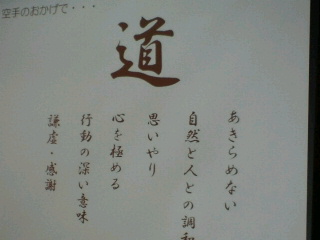 空手のおかげで・・・
道
あきらめない
自然と人との調和
思いやり
心を極める
行動の深い意味
謙虚・感謝